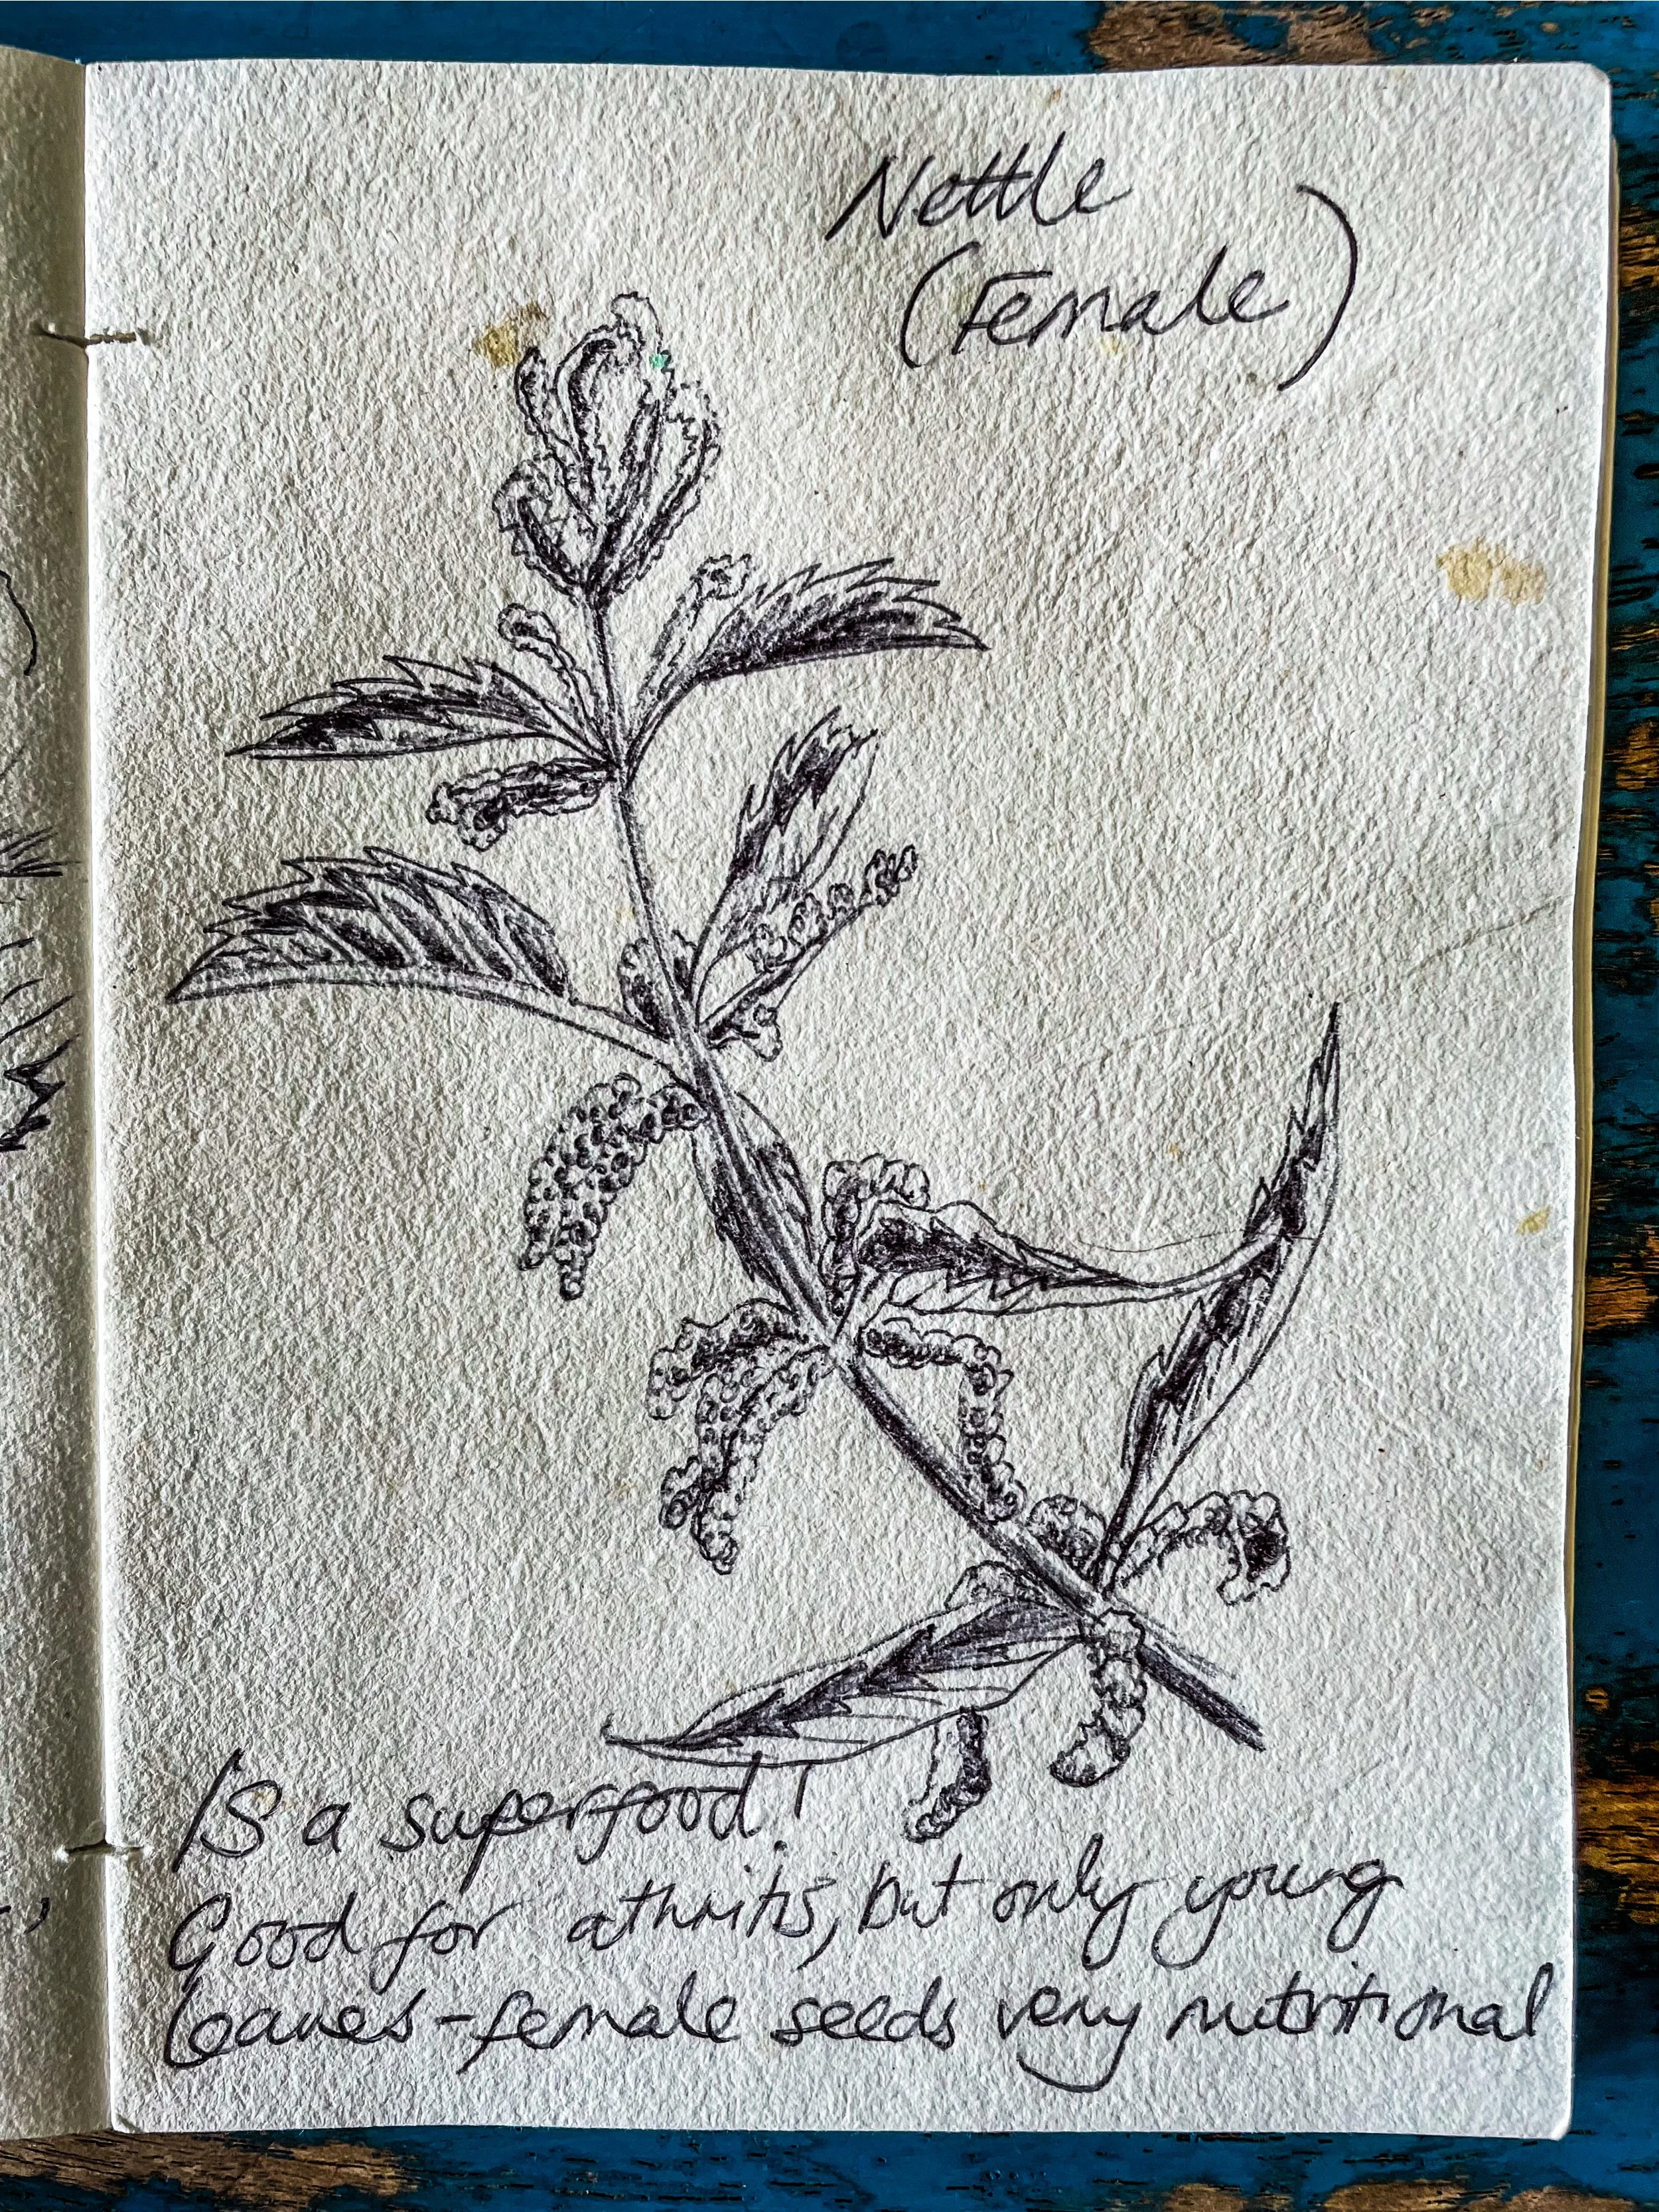 Nettle
(Female)
Is a superfood!
Good for athritis, but only young
leaves - female seeds very nutritional